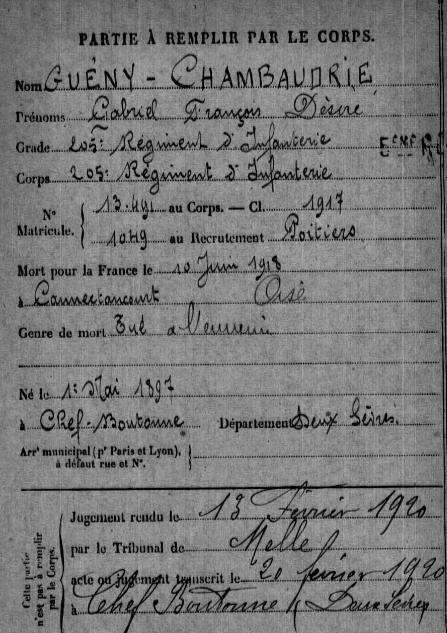 PARTIE À REMPLIR PAR LE CORPS.
Nom GUÉNY - CHAMBAUDRIE
Prénoms Gabriel François Désiré
Grade 205e Régiment d'Infanterie
Corps 205e Régiment d'Infanterie
N° Matricule. { 13.491 au Corps. — Cl. 1917
1049 au Recrutement Poitiers
Mort pour la France le 10 Juin 1918
à Cannectancourt Oise
Genre de mort Tué à l'ennemi
Né le 1er Mai 1897
à Chef-Boutonne Département Deux Sèvres.
Arrt municipal (pr Paris et Lyon),
à défaut rue et N°.
Cette partie n'est pas à remplir par le Corps.
Jugement rendu le 13 Février 1920
par le Tribunal de Melle
acte ou jugement transcrit le 20 février 1920
à Chef Boutonne (Deux Sèvres